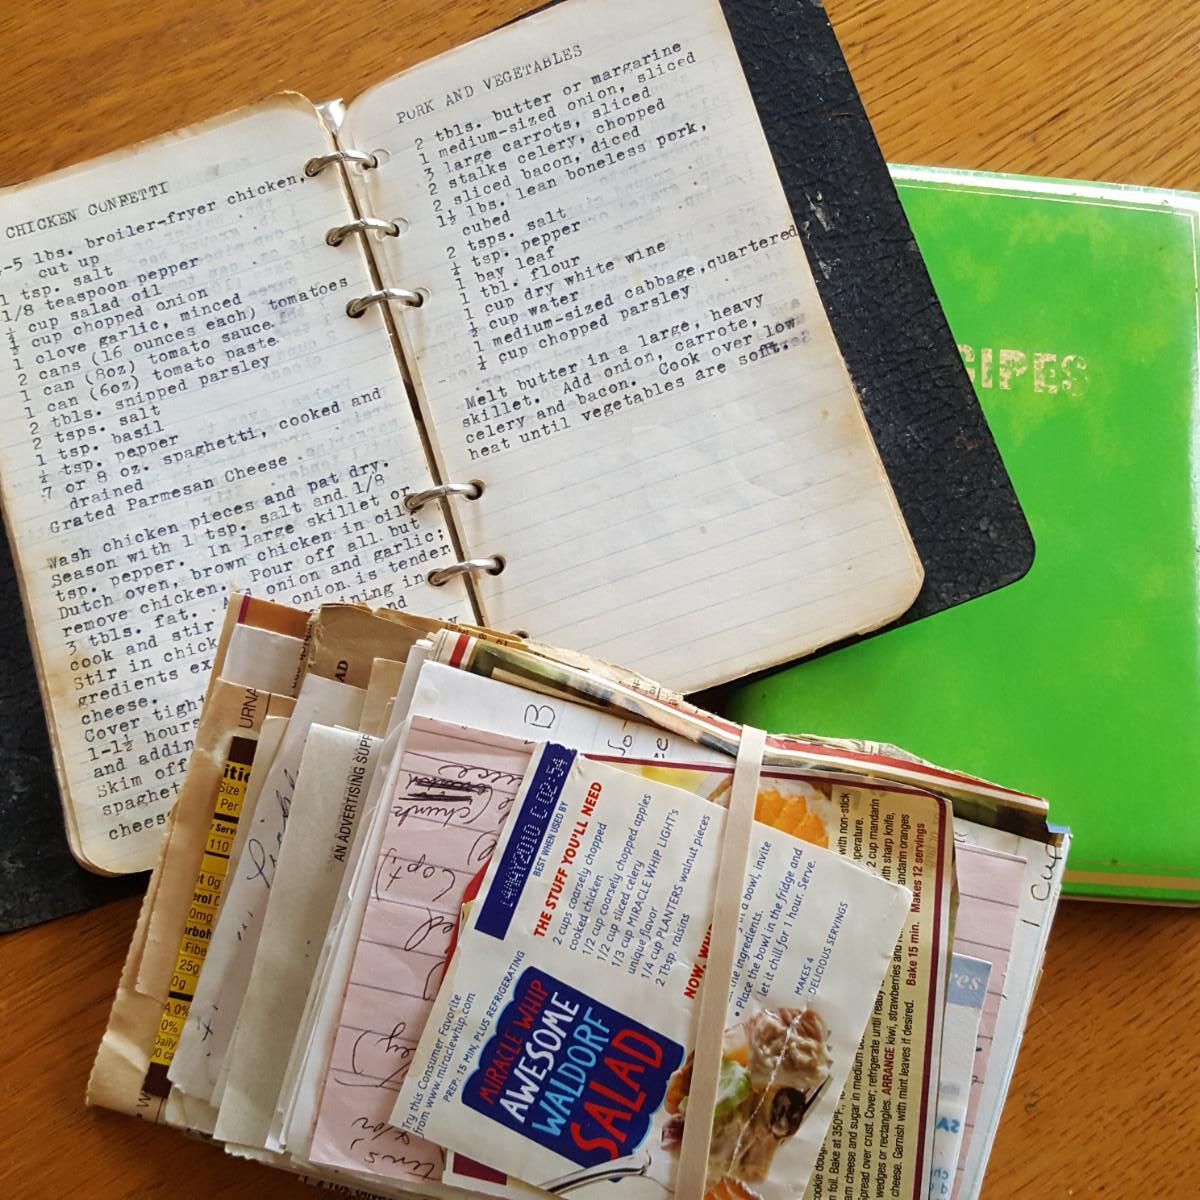 CHICKEN CONFETTI
-5 lbs. broiler-fryer chicken,
cut up
1 tsp. salt
1/8 teaspoon pepper
cup salad oil
cup chopped onion
1 clove garlic, minced
2 cans (16 ounces each) tomatoes
1 can (8oz) tomato sauce.
1 can (6oz) tomato paste
2 tbls. snipped parsley
2 tsps. salt
1 tsp. basil
¼ tsp. pepper
7 or 8 oz. spaghetti, cooked and
drained
Grated Parmesan Cheese
Wash chicken pieces and pat dry.
Season with 1 tsp. salt and 1/8
tsp. pepper. In large skillet or
Dutch oven, brown chicken in oil
remove chicken. Pour off all but
3 tbls. fat. onion and garlic;
cook and stir onion is tender
Stir in chick ining in
gredients ex nd
cheese.
Cover tight
1-1½ hours
and addin
Skim off
spaghet
chees
PORK AND VEGETABLES
2 tbls. butter or margarine
1 medium-sized onion, sliced
3 large carrots, sliced
2 stalks celery, chopped
2 sliced bacon, diced
1½ lbs. lean boneless pork,
cubed
2 tsps. salt
¼ tsp. pepper
1 bay leaf
1 tbl. flour
1 cup dry white wine
½ cup water
1 medium-sized cabbage, quartered
¼ cup chopped parsley
Melt butter in a large, heavy
skillet. Add onion, carrote,
celery and bacon. Cook over low
heat until vegetables are soft.
CIPES
URNA
AD
AN ADVERTISING SUPP
Size
Per
110
0g
0mg
Fibe
25g
0g
0%
B
chunk
1 Cup
14MAY2010 C 02:54
BEST WHEN USED BY
THE STUFF YOU'LL NEED
2 cups coarsely chopped
cooked chicken
1/2 cup coarsely chopped apples
1/2 cup sliced celery
1/3 cup MIRACLE WHIP LIGHT's
unique flavor
1/4 cup PLANTERS walnut pieces
2 Tbsp. raisins
NOW, WHIP
in a bowl, invite
the ingredients.
• Place the bowl in the fridge and
let it chill for 1 hour. Serve.
MAKES 4
DELICIOUS SERVINGS
Try this Consumer Favorite
from www.miraclewhip.com
PREP: 15 MIN, PLUS REFRIGERATING
MIRACLE WHIP
AWESOME
WALDORF
SALAD
with non-stick
perature.
2 cup mandarin
with sharp knife,
andarin oranges
Bake 15 min. Makes 12 servings
cookie doug
n foil. Bake at 350°F,
am cheese and sugar in medium
spread over crust. Cover; refrigerate until ready
wedges or rectangles. ARRANGE kiwi, strawberries and
cheese. Garnish with mint leaves if desired.